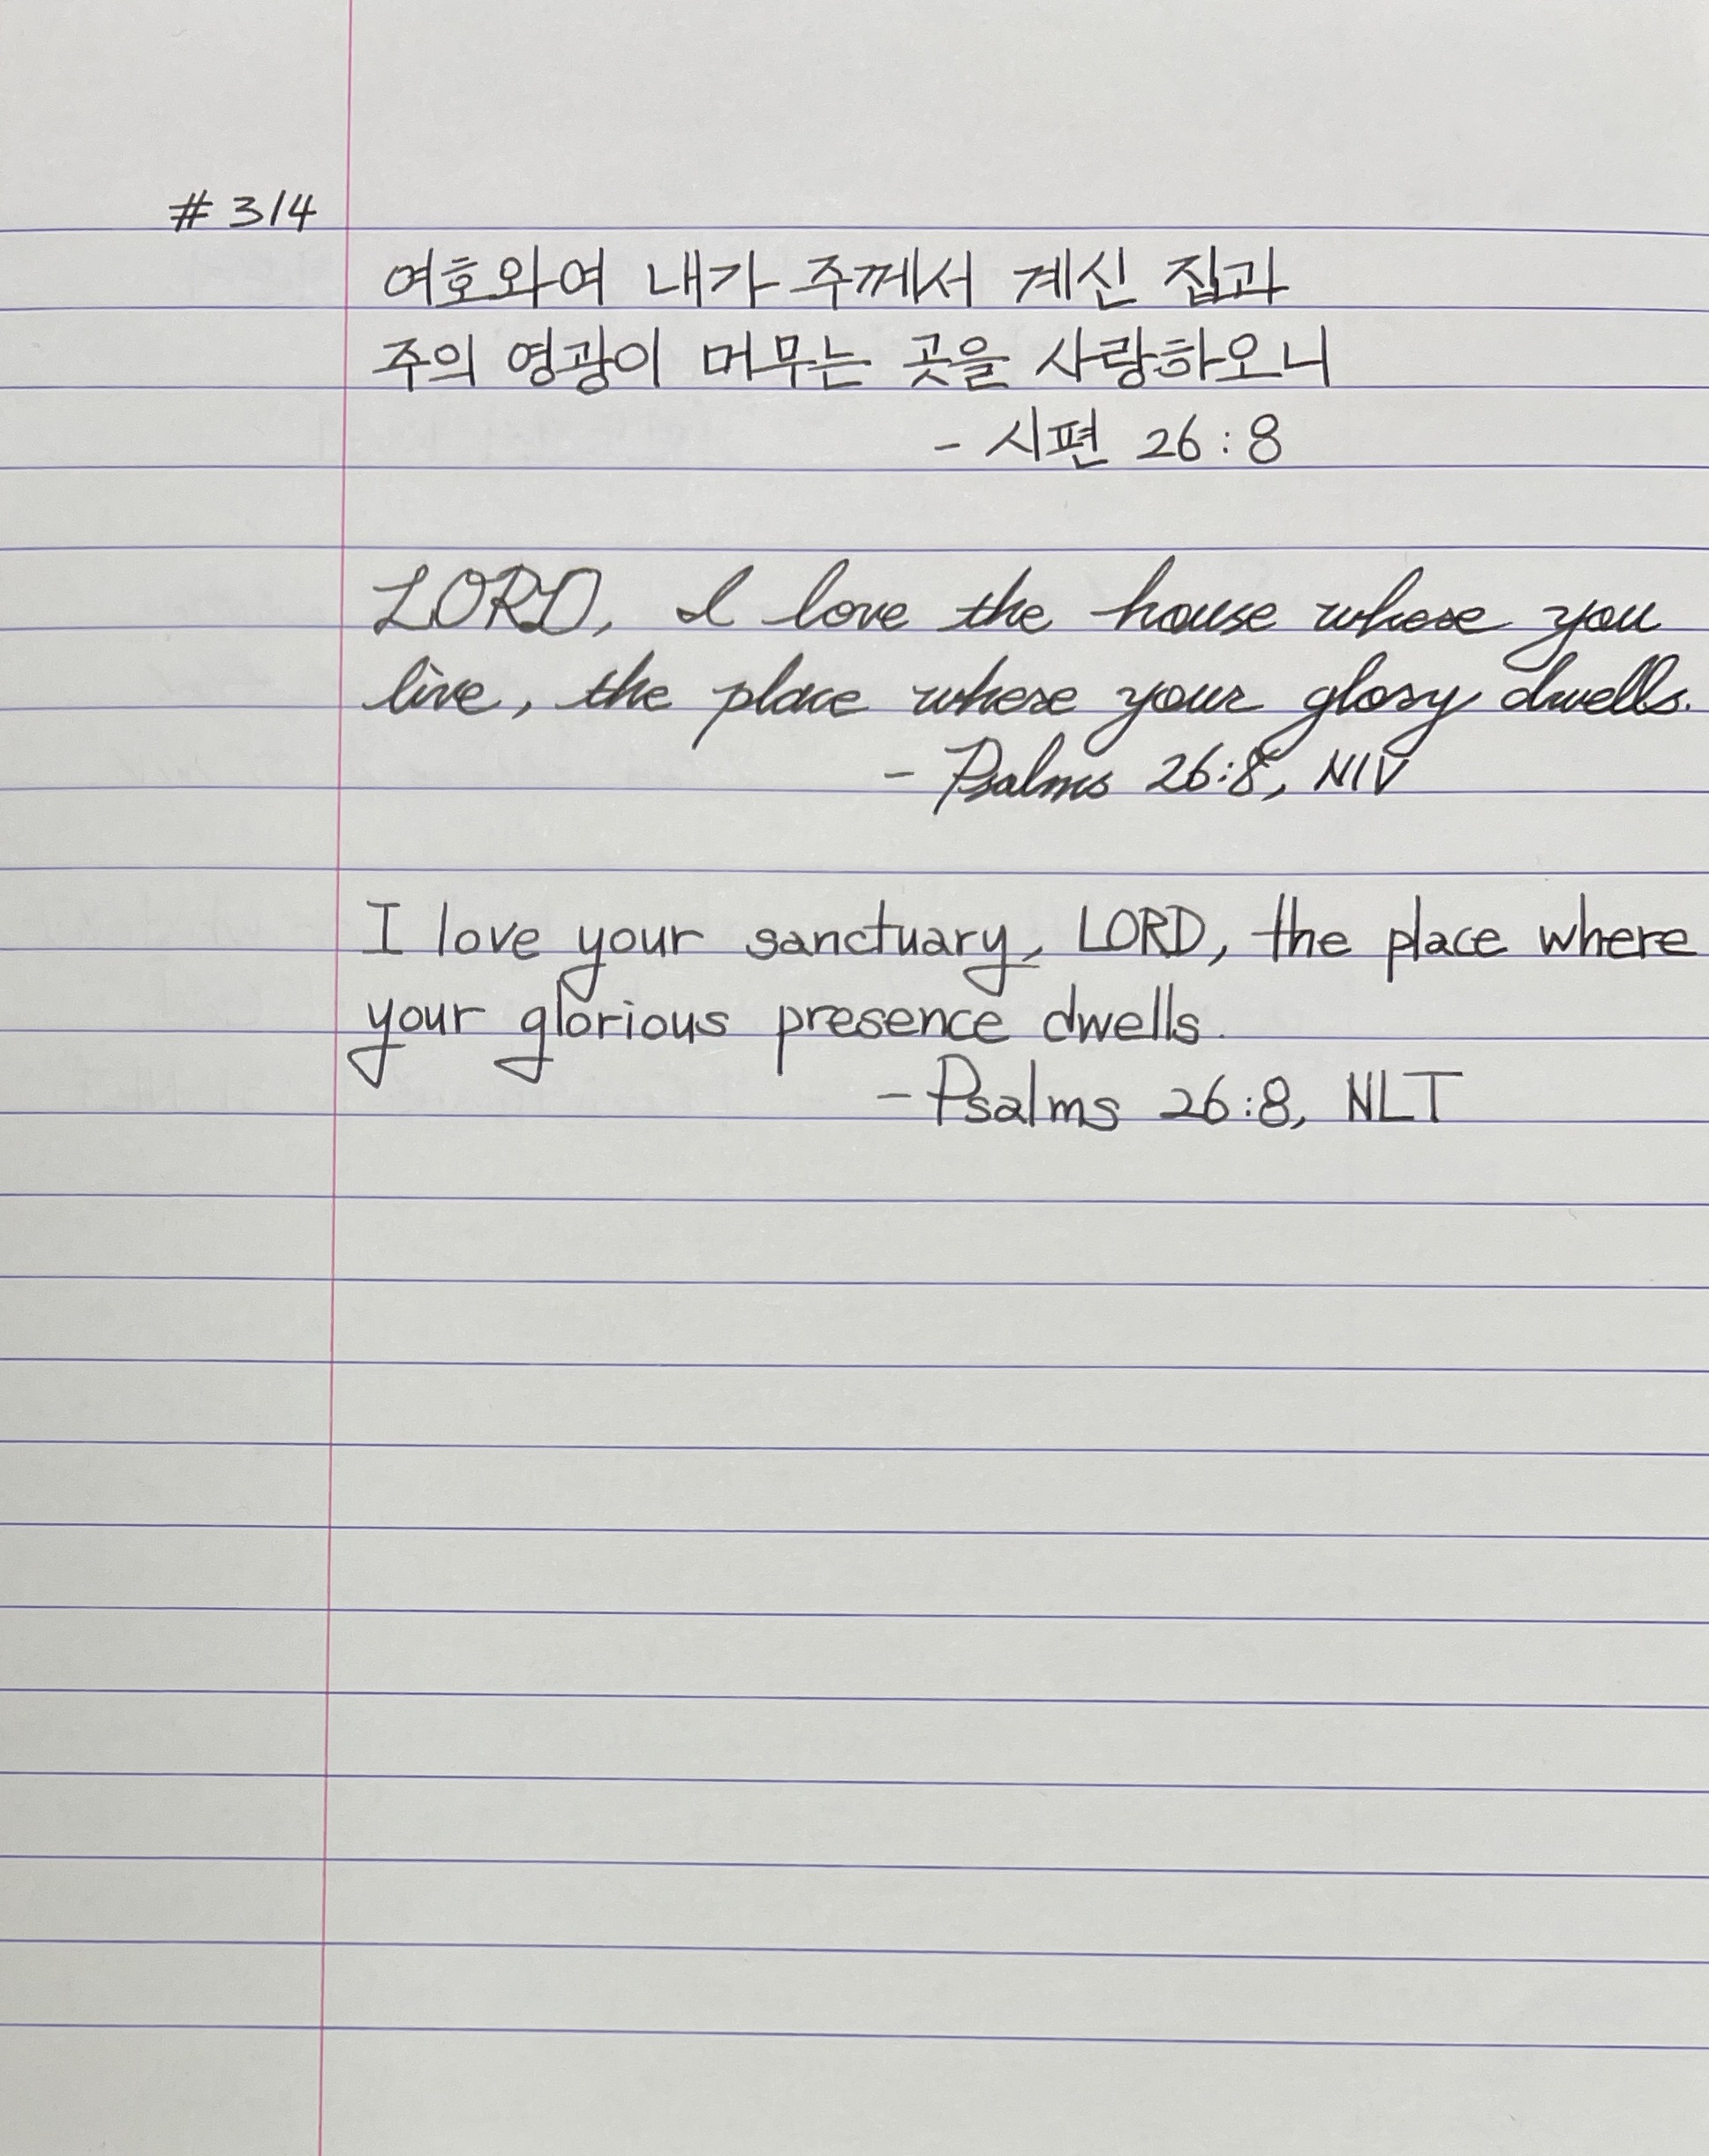 # 314
여호와여 내가 주께서 계신 집과
주의 영광이 머무는 곳을 사랑하오니
- 시편 26:8
LORD, I love the house where you
live, the place where your glory dwells.
- Psalms 26:8, NIV
I love your sanctuary, LORD, the place where
your glorious presence dwells.
- Psalms 26:8, NLT